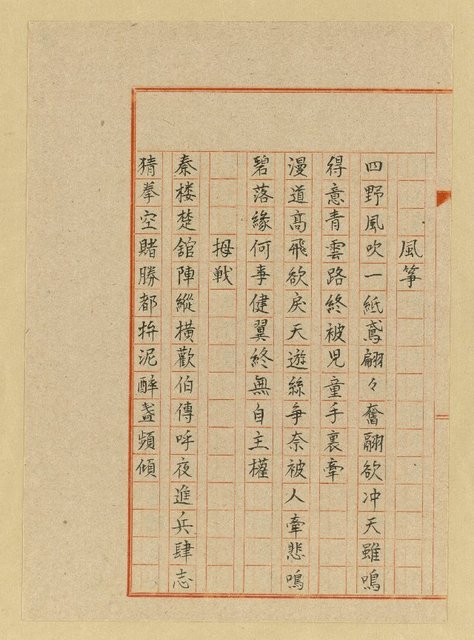 風箏
四野風吹一紙鳶翩々奮翮欲冲天雖鳴
得意青雲路終被児童手裏牽
漫道高飛欲戾天遊絲爭奈被人牽悲鳴
碧落緣何事健翼終無自主權
拇戦
秦楼楚舘陣縱橫歡伯傳呼夜進兵肆志
猜拳空賭勝都拚泥醉盞頻傾